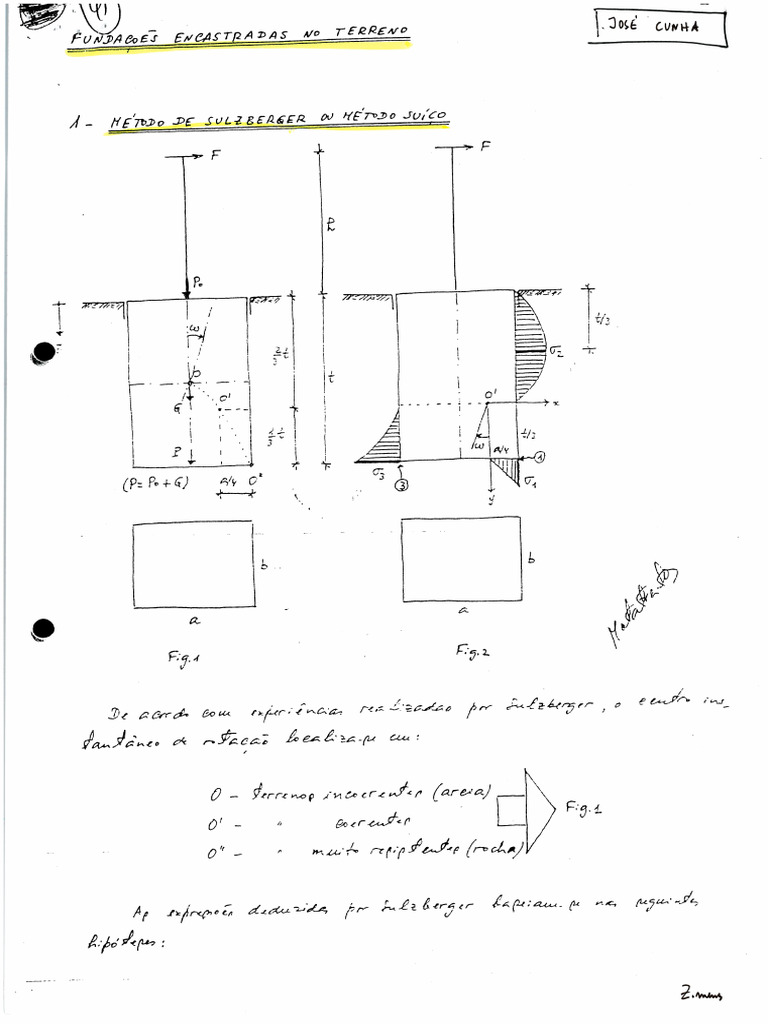 FUNDAÇÕES ENCASTRADAS NO TERRENO
JOSÉ CUNHA
1 - MÉTODO DE SULZBERGER OU MÉTODO SUÍÇO
F
F
h
P₀
ω
2/3 t
t
t/3
σ₂
O
O'
O'
x
G
ω
a/4
t/3
1/3 t
P
1
σ₃
σ₁
(P = P₀ + G)
a/4
O"
3
y
b
b
a
a
Fig.1
Fig.2
De acordo com experiências realizadas por Sulzberger, o centro ins-
tantâneo de rotação localiza-se em:
O - terrenos incoerentes (areia)
O' - " coerentes
Fig.1
O" - " muito resistentes (rocha)
As expressões deduzidas por Sulzberger baseiam-se nas seguintes
hipóteses: